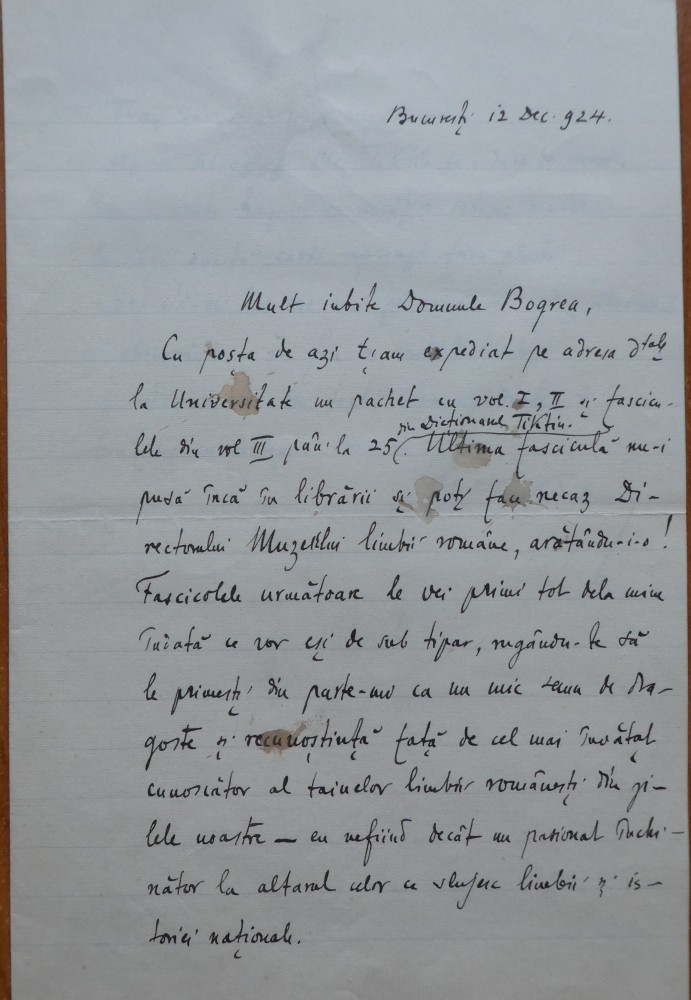 București 12 Dec. 924.
Mult iubite Domnule Bogrea,
Cu poșta de azi ți-am expediat pe adresa dtale
la Universitate un pachet cu vol. I, II și fascico-
din Dicționarul Tiktin.
lele din vol III pân' la 25. Ultima fasciculă nu-i
pusă încă în librării și poți face necaz Di-
rectorului Muzeului limbii române, arătându-i-o!
Fascicolele următoare le vei primi tot dela mine
îndată ce vor eși de sub tipar, rugându-te să
le primești din parte-mi ca un mic semn de dra-
goste și recunoștință față de cel mai învățat
cunoscător al tainelor limbii românești din zi-
lele noastre — eu nefiind decât un pasionat închi-
nător la altarul celor ce slujesc limbii și is-
toriei naționale.